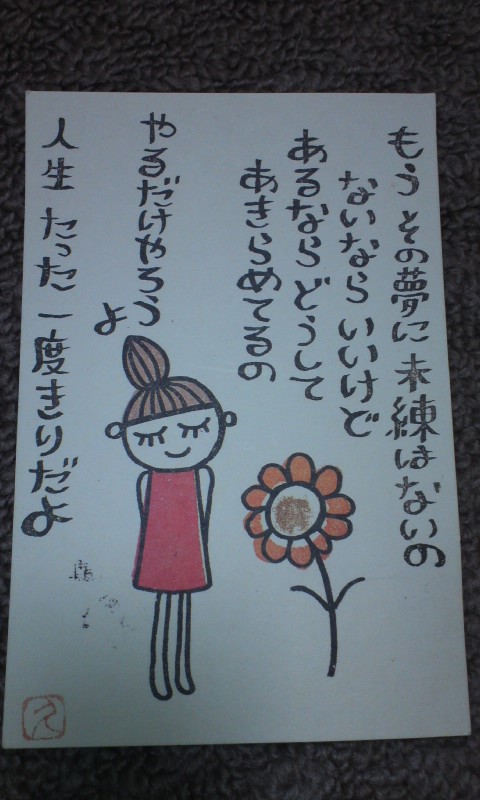 もう その夢に 未練はないの
ないなら いいけど
あるなら どうして
あきらめてるの
やるだけやろう
よ
人生 たった 一度きりだよ
え